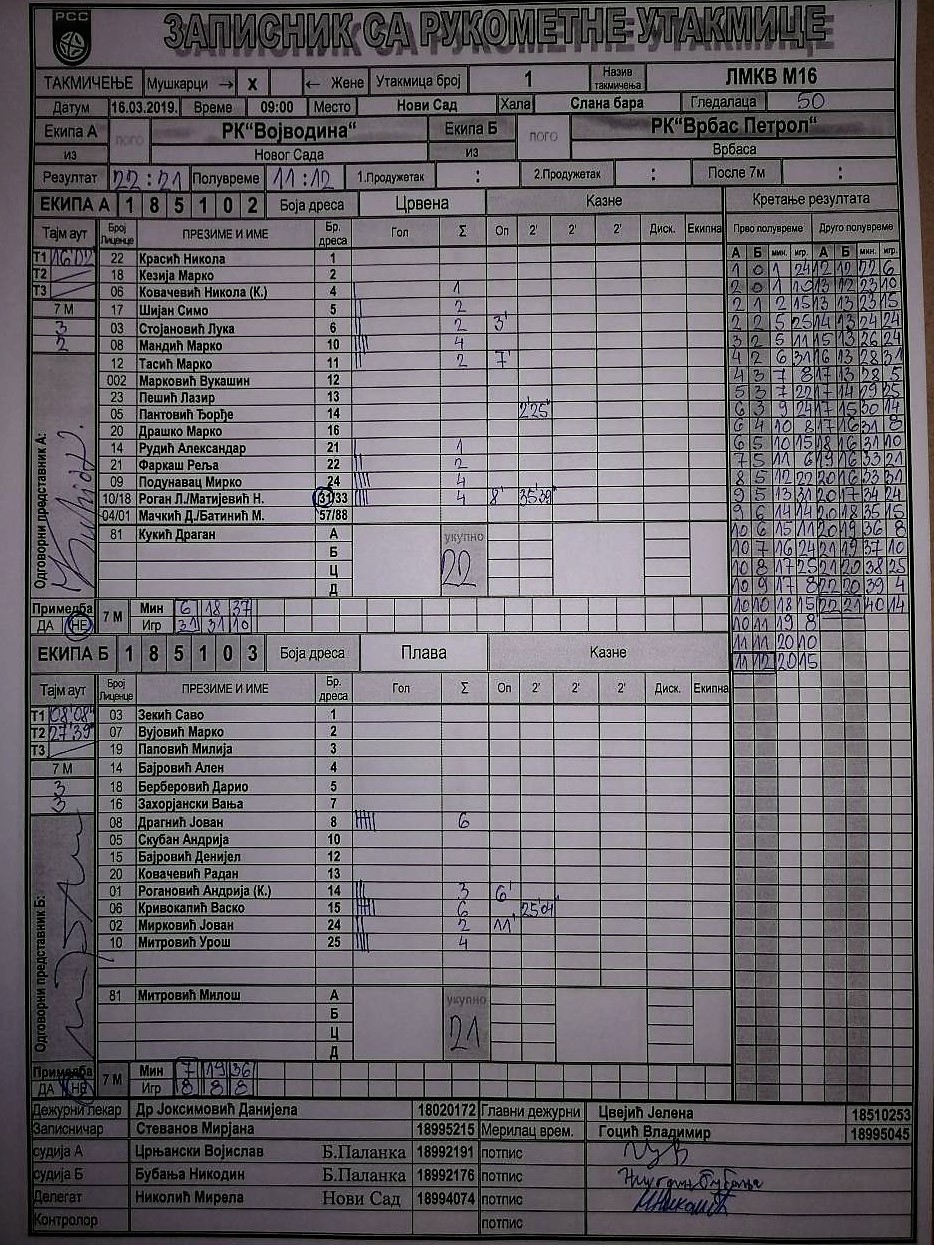 РСС
ЗАПИСНИК СА РУКОМЕТНЕ УТАКМИЦЕ
ТАКМИЧЕЊЕ Мушкарци → X ← Жене Утакмица број 1 Назив такмичења ЛМКВ М16
Датум 16.03.2019. Време 09:00 Место Нови Сад Хала Слана бара Гледалаца 50
Екипа А лого РК"Војводина" Екипа Б лого РК"Врбас Петрол"
из Новог Сада из Врбаса
Резултат 22:21 Полувреме 11:12 1.Продужетак : 2.Продужетак : После 7м :
ЕКИПА А 1 8 5 1 0 2 Боја дреса Црвена Казне Кретање резултата
Тајм аут Број Лиценце ПРЕЗИМЕ И ИМЕ Бр. дреса Гол Σ Оп 2' 2' 2' Диск. Екипна Прво полувреме Друго полувреме
А Б мин. игр. А Б мин. игр.
Т1 16'02" 22 Красић Никола 1
Т2 18 Кезија Марко 2
Т3 06 Ковачевић Никола (К.) 4 1
7 М 17 Шијан Симо 5 2
3 03 Стојановић Лука 6 2 3'
2 08 Мандић Марко 10 4
12 Тасић Марко 11 2 7'
002 Марковић Вукашин 12
23 Пешић Лазир 13
05 Пантовић Ђорђе 14 2'25"
20 Драшко Марко 16
14 Рудић Александар 21 1
21 Фаркаш Реља 22 2
09 Подунавац Мирко 24 4
10/18 Роган Л./Матијевић Н. 31/33 4 8' 35'39"
04/01 Мачкић Д./Батинић М. 57/88
81 Кукић Драган А укупно 22
Б
Ц
Д
Одговорни представник А:
1 0 1 24 12 12 22 6
2 0 1 10 13 12 23 10
2 1 2 15 13 13 23 15
2 2 5 25 14 13 24 24
3 2 5 11 15 13 26 24
4 2 6 31 16 13 28 31
4 3 7 8 17 13 28 5
5 3 7 22 17 14 29 25
6 3 9 24 17 15 30 14
6 4 10 8 17 16 31 8
6 5 10 15 18 16 31 10
7 5 11 6 19 16 33 21
8 5 12 22 20 16 33 31
9 5 13 31 20 17 34 24
9 6 14 14 20 18 35 15
10 6 15 11 20 19 36 8
10 7 16 24 21 19 37 10
10 8 17 25 21 20 38 25
10 9 17 8 22 20 39 4
10 10 18 15 22 21 40 14
10 11 19 8
11 11 20 10
11 12 20 15
Примедба 7 М Мин 6 18 37
ДА НЕ Игр 31 31 10
ЕКИПА Б 1 8 5 1 0 3 Боја дреса Плава Казне
Тајм аут Број Лиценце ПРЕЗИМЕ И ИМЕ Бр. дреса Гол Σ Оп 2' 2' 2' Диск. Екипна
Т1 08'08" 03 Зекић Саво 1
Т2 27'39" 07 Вујовић Марко 2
Т3 19 Паповић Милија 3
7 М 14 Бајровић Ален 4
3 18 Берберовић Дарио 5
3 16 Захорјански Вања 7
08 Драгнић Јован 8 6
05 Скубан Андрија 10
15 Бајровић Денијел 12
20 Ковачевић Радан 13
01 Рогановић Андрија (К.) 14 3 6'
06 Кривокапић Васко 15 6 25'04"
02 Мирковић Јован 24 2 11'
10 Митровић Урош 25 4
81 Митровић Милош А укупно 21
Б
Ц
Д
Одговорни представник Б:
Примедба 7 М Мин 7 19 36
ДА НЕ Игр 8 8 8
Дежурни лекар Др Јоксимовић Данијела 18020172 Главни дежурни Цвејић Јелена 18510253
Записничар Стеванов Мирјана 18995215 Мерилац врем. Гоцић Владимир 18995045
судија А Црњански Војислав Б.Паланка 18992191 потпис
судија Б Бубања Никодин Б.Паланка 18992176 потпис Никодин Бубања
Делегат Николић Мирела Нови Сад 18994074 потпис
Контролор потпис